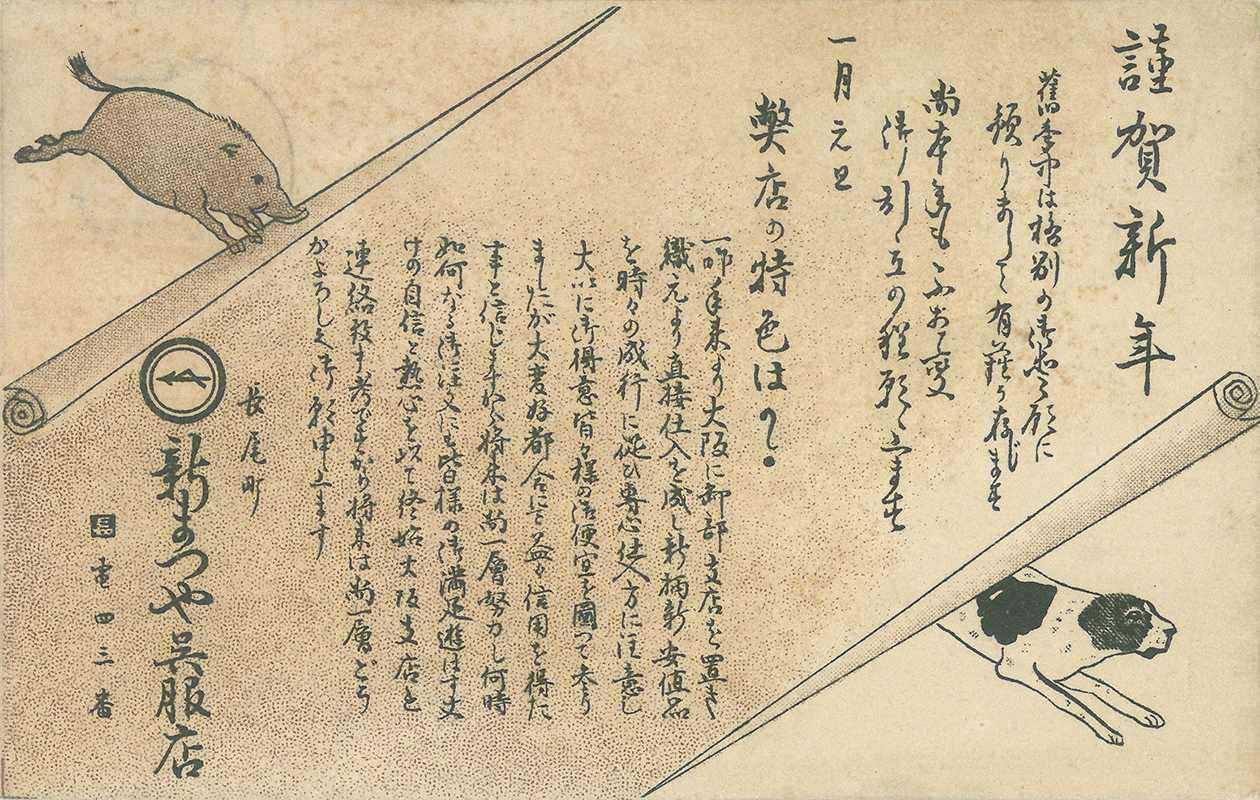 謹賀新年
舊季中は格別の御愛顧に
預りまして有難う存じます
尚本年も不相變
御引立の程願上ます
一月元旦
弊店の特色は?
一昨年来より大阪に卸部支店を置き
織元より直接仕入を成し新柄新安値品
を時々の成行に従ひ専心仕入方に注意し
大いに御得意皆々様の御便宜を圖つて参り
ましたが大変好都合にて益々信用を得た
事と信じます将来は尚一層努力し何時
如何なる御注文にも皆様の御満足遊ばす丈
けの自信と熱心を以て終始大阪支店と
連絡致す考ですから将来は尚一層どう
かよろしく御願申上ます
長尾町
新まつや呉服店
長 電四三番